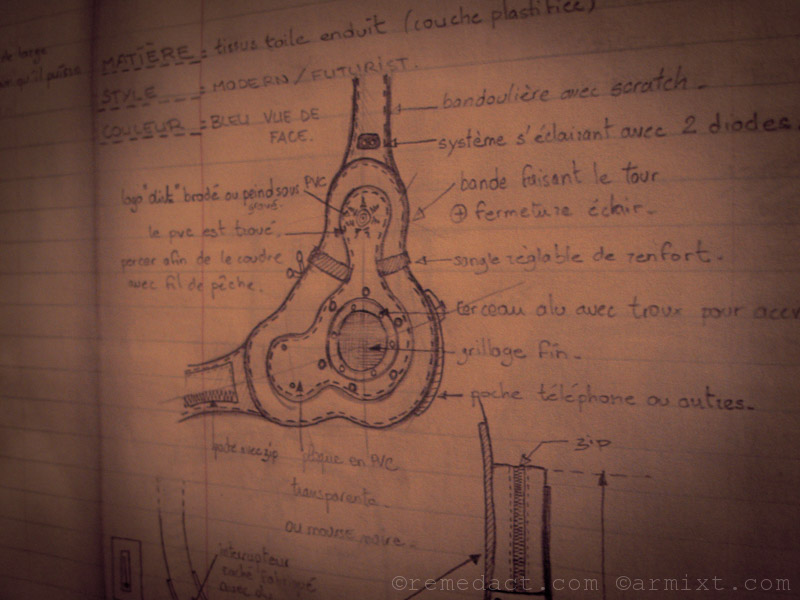 MATIÈRE = tissus toile enduit (couche plastifiée)
STYLE = MODERN / FUTURIST.
COULEUR = BLEU VUE DE
FACE.
de large
bandoulière avec scratch.
système s'éclairant avec 2 diodes.
bande faisant le tour
+ fermeture éclair.
sangle réglable de renfort.
cerceau alu avec troux pour
grillage fin.
poche téléphone ou autres.
brodé ou peind sous PVC
le pvc est troué.
percer afin de le coudre
avec fil de pêche.
poche avec zip
plaque en PVC
transparente
ou mousse noire.
zip
interrupteur
caché
©remedact.com ©armixt.com